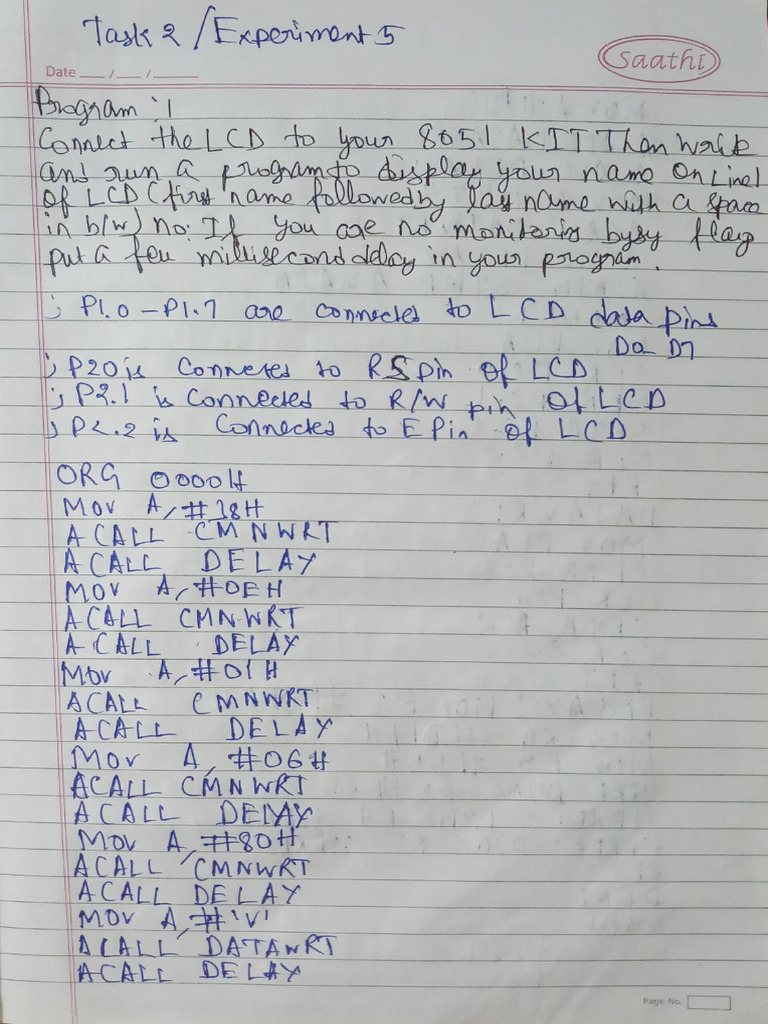 Task 2 / Experiment 5
Saathi
Date __/__/____
Program : 1
Connect the LCD to your 8051 KIT Then write
and run a program to display your name on Line1
of LCD (first name followed by last name with a space
in b/w) no: If you are no monitoring bysy flag
put a few millisecond delay in your program.
; P1.0 - P1.7 are connected to LCD data pins
D0 D7
; P20 is Connected to RS pin of LCD
; P2.1 is Connected to R/W pin of LCD
; P2.2 is Connected to E Pin of LCD
ORG 0000H
MOV A, #38H
ACALL CMNWRT
ACALL DELAY
MOV A, #0EH
ACALL CMNWRT
ACALL DELAY
MOV A, #01H
ACALL CMNWRT
ACALL DELAY
MOV A, #06H
ACALL CMNWRT
ACALL DELAY
MOV A, #80H
ACALL CMNWRT
ACALL DELAY
MOV A, #'V'
ACALL DATAWRT
ACALL DELAY
Page No.